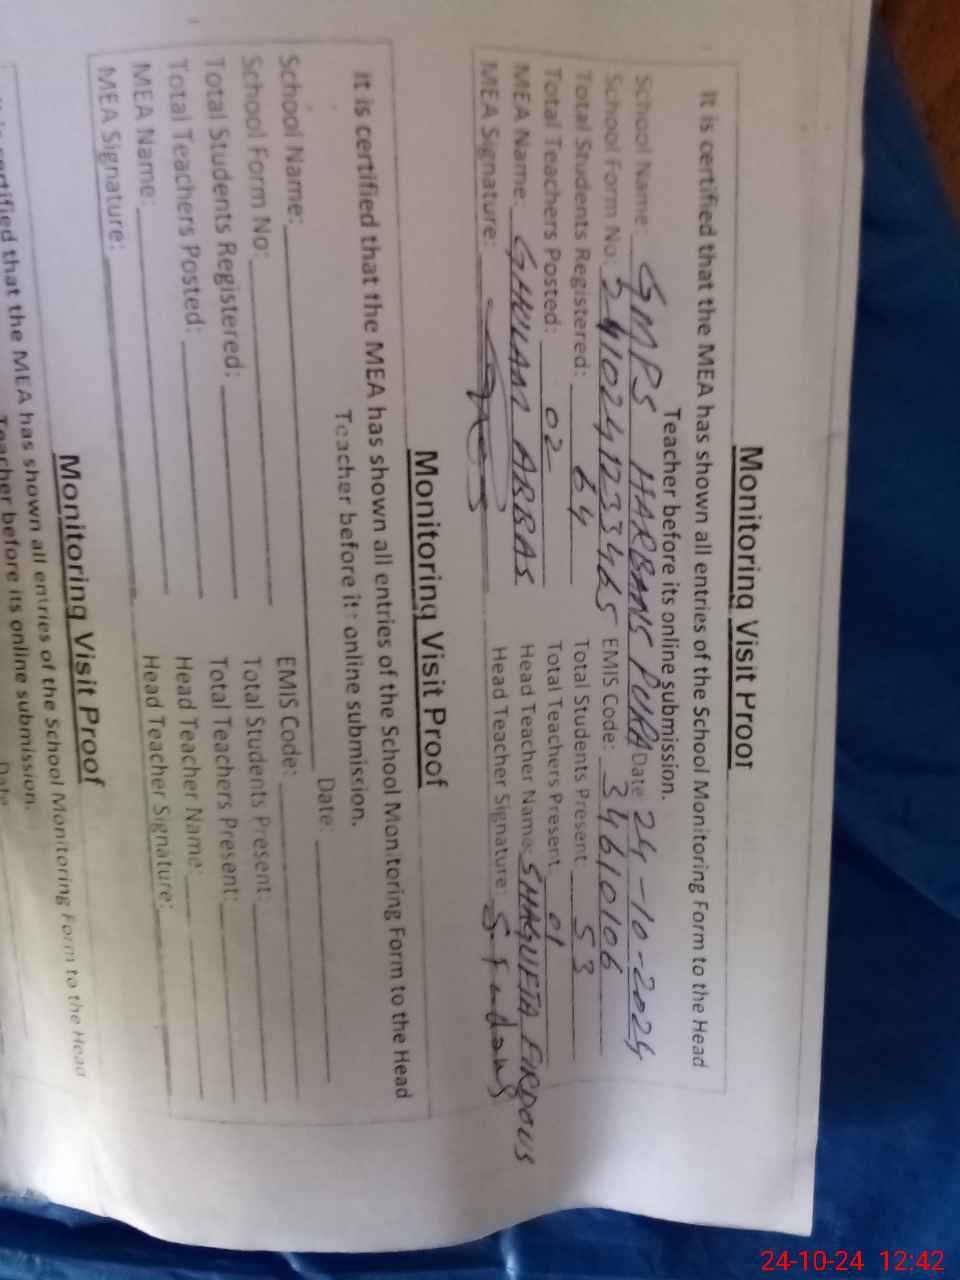 Monitoring Visit Proof
It is certified that the MEA has shown all entries of the School Monitoring Form to the Head
Teacher before its online submission.
School Name: GMPS HARBANS PURA Date 24-10-2024
School Form No. 2410241233465 EMIS Code: 34610106
Total Students Registered: 64 Total Students Present: 53
Total Teachers Posted: 02 Total Teachers Present 01
MEA Name: GHULAM ABBAS Head Teacher Name: SHAGUFTA FIRDOUS
MEA Signature: Head Teacher Signature: S. Firdous
Monitoring Visit Proof
It is certified that the MEA has shown all entries of the School Monitoring Form to the Head
Teacher before its online submission.
School Name: Date:
School Form No: EMIS Code:
Total Students Registered: Total Students Present:
Total Teachers Posted: Total Teachers Present:
MEA Name: Head Teacher Name:
MEA Signature: Head Teacher Signature:
Monitoring Visit Proof
certified that the MEA has shown all entries of the School Monitoring Form to the Head
Teacher before its online submission.
Date
24-10-24 12:42